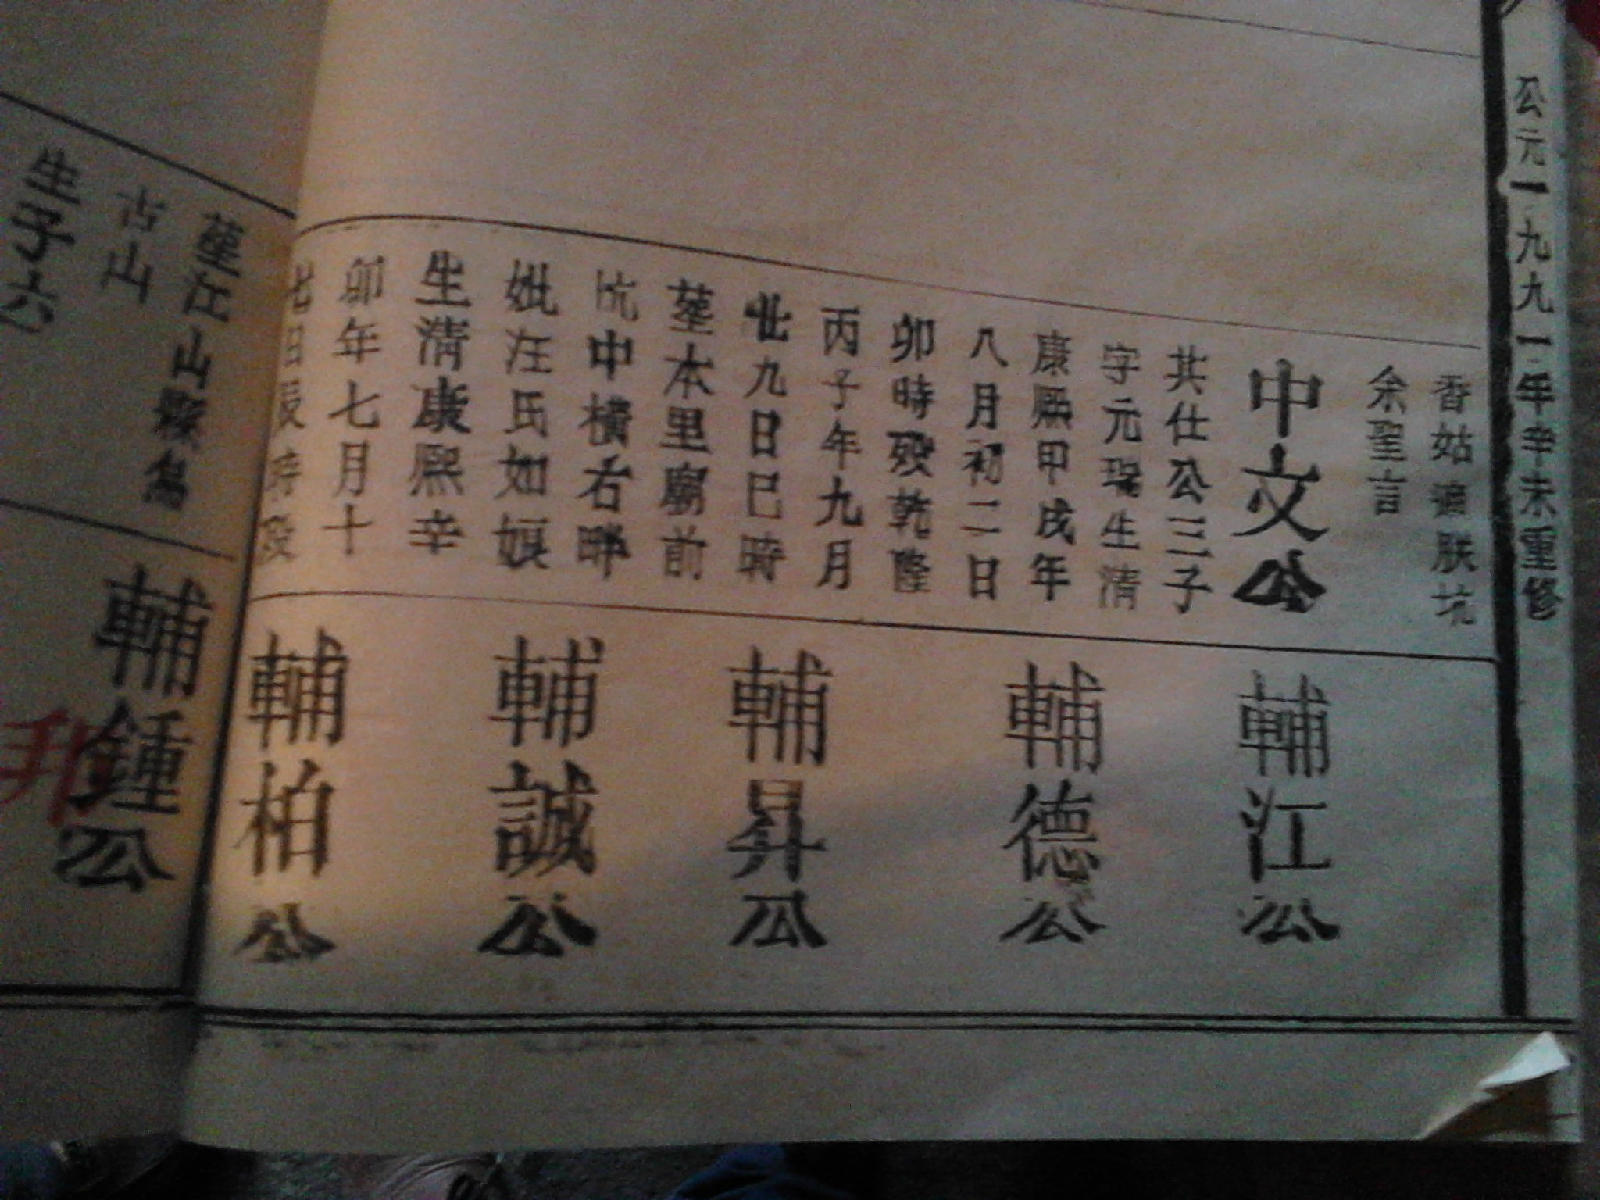 公元一九九一年辛未重修
香姑
肤坑
余聖言
中文公
其仕公三子
字元瑞生清
康熙甲戌年
八月初二日
卯時殁乾隆
丙子年九月
廿九日巳時
塟本里廟前
坑中橫右畔
妣汪氏如娘
生清康熙辛
卯年七月十
七日辰時殁
輔江公
輔德公
輔昇公
輔誠公
輔柏公
塟江山縣
古山
生子六
輔鍾公